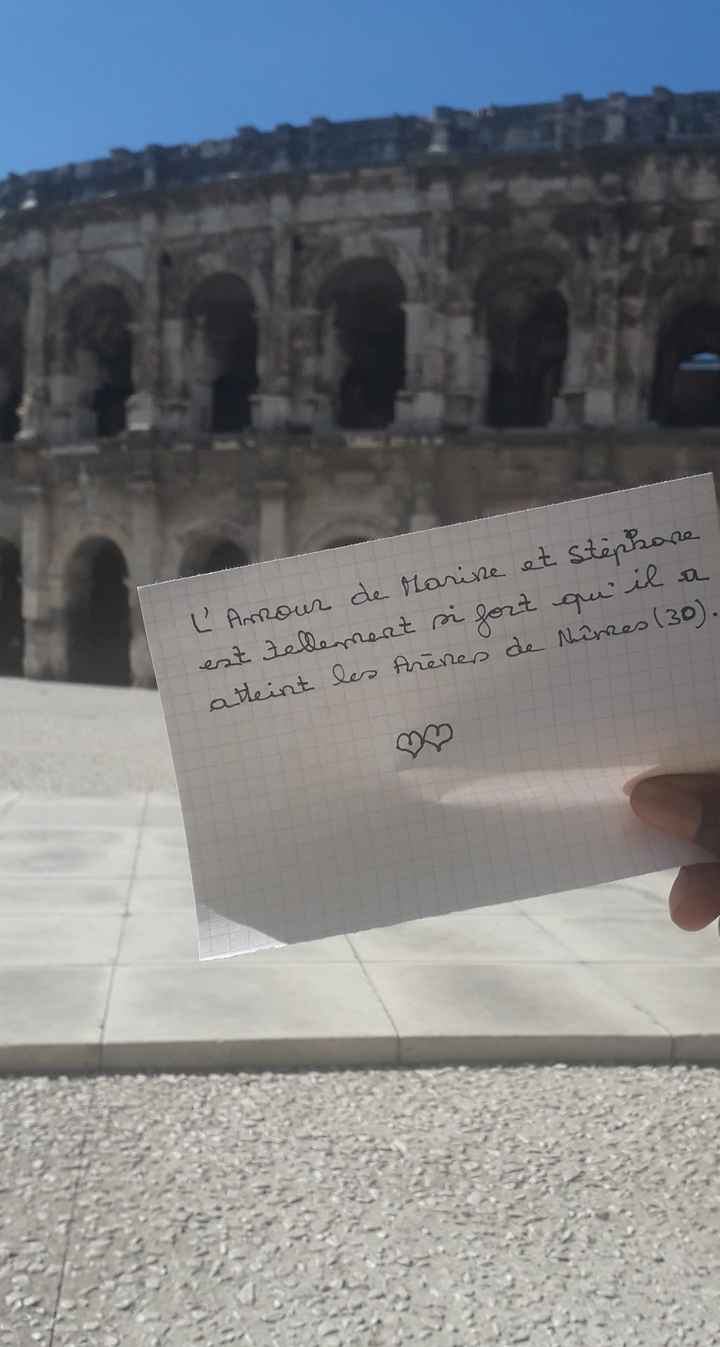 L'Amour de Marine et Stéphane
est tellement si fort qu'il a
atteint les Arènes de Nîmes (30).